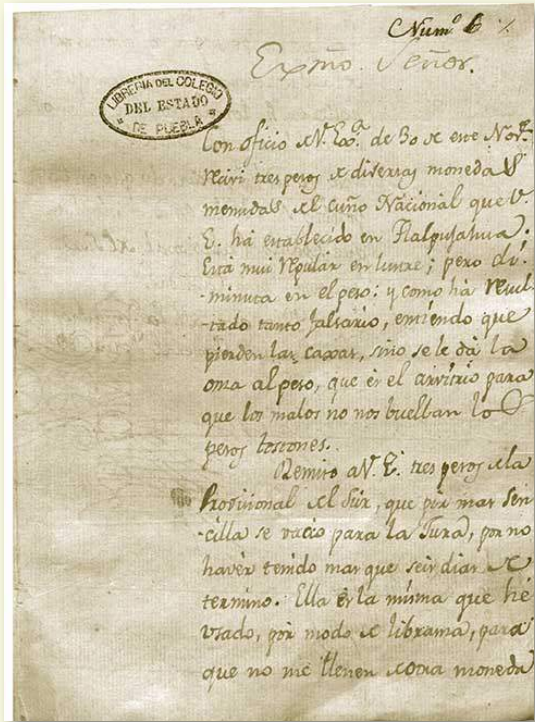 Num.º 6 %
Exmô. Señor.
LIBRERIA DEL COLEGIO
DEL ESTADO
DE PUEBLA
Con oficio de V. Exª. de 30 de este Nov.ê
recivi tres pesos de diversas monedas
menudas del cuño Nacional que V.
E. ha establecido en Tlalpujahua.
Está mui regular en lustre; pero di-
-minuta en el peso: y como há resul-
-tado tanto falsario, entiendo que
pierden las caxas, sino se le dá la
onza al peso, que és el arvitrio para
que los malos no nos buelban lo
pesos tostones.
Remito a V. E. tres pesos de la
Provicional del Sur, que pòr mas sen-
-cilla se vació para la Jura, por no
havèr tenido mas que seis dias de
termino. Ella és la misma que hé
usado, pòr modo de libransa, para
que no me llenen de otra moneda